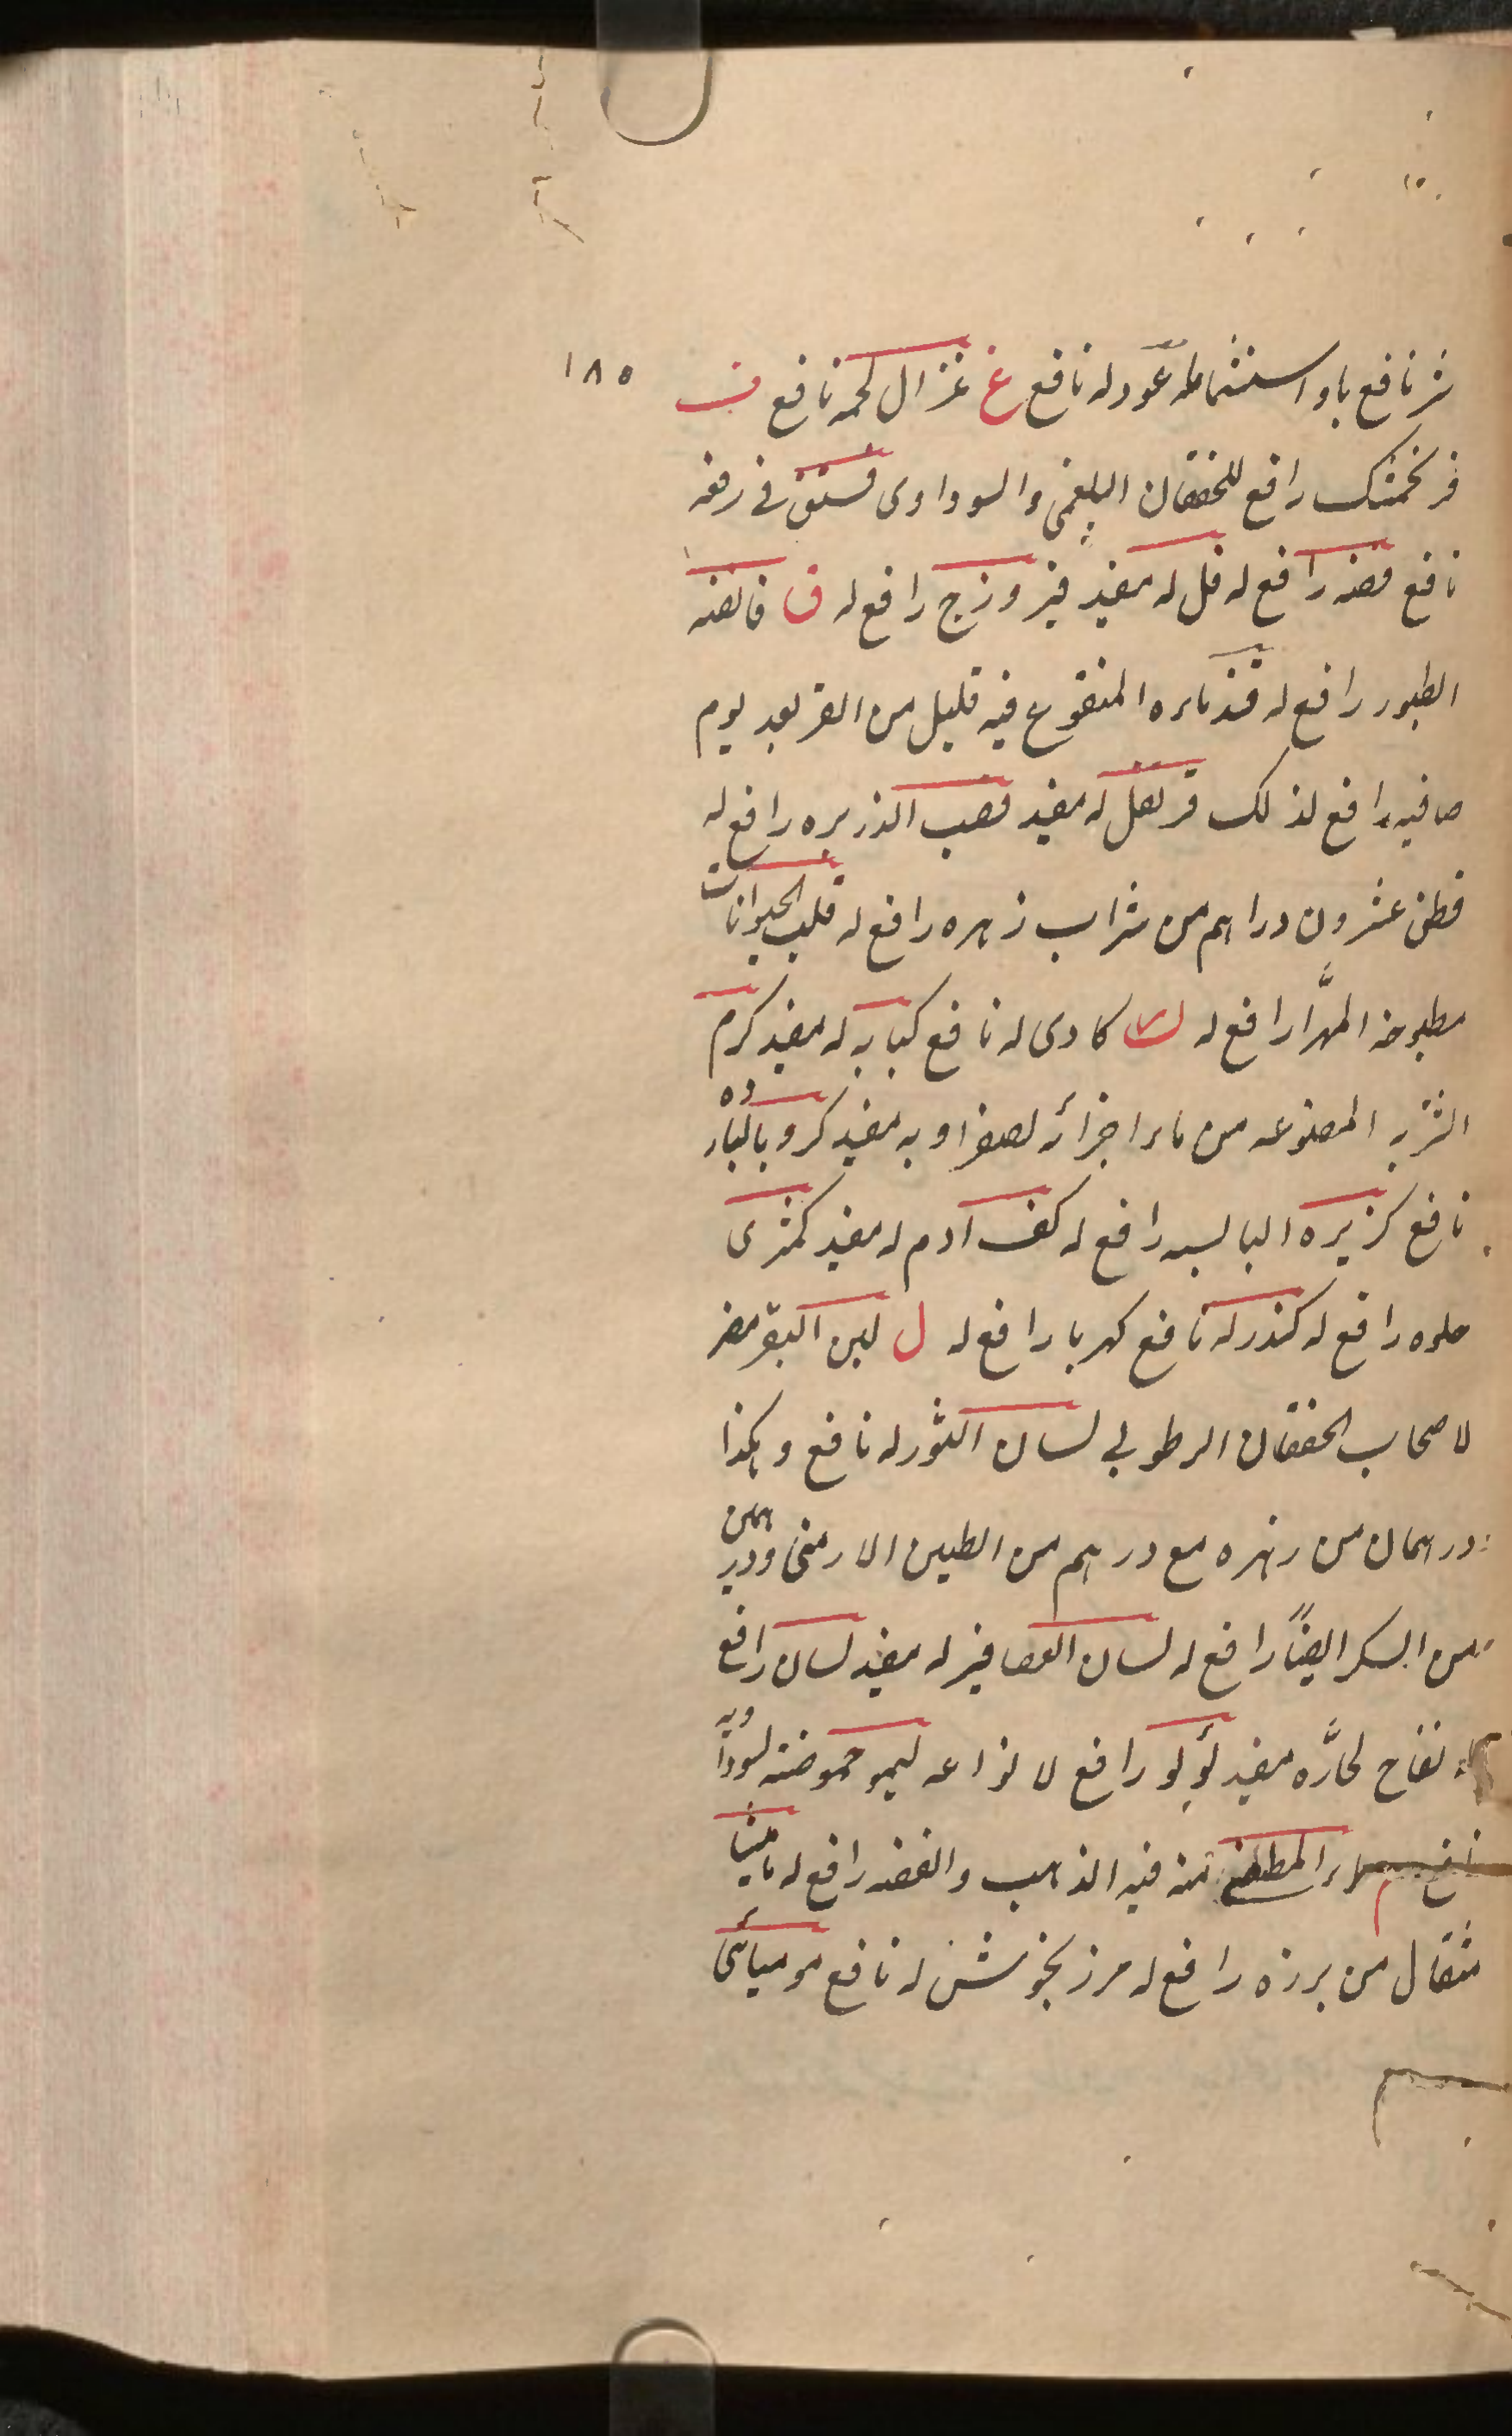 ١٨٥
نافع عود له نافع غ غزال لحمه نافع ف
فرنجمشك رافع للخفقان البلغمى والسوداوى فستق فى رفعه
نافع فضه رافع له فل له مفيد فيروزج رافع له ق قانصه
الطيور رافع له المنقوع فيه قليل من القر بعد يوم
صافيه رافع لذلك قرنفل له مفيد قصب الذريره رافع له
قطن عشرون دراهم من شراب زهره رافع له قلب الحيوانات
مطبوخه المهرّا رافع له ك كادى له نافع كبابه له مفيد كرم
الشربه المصنوعه من ماء اجزائه لصفراويه مفيد كرويا لبارده
نافع كزبره اليابسه رافع له كف ادم له مفيد كمثرى
حلوه رافع له كندر له نافع كهربا رافع له ل لبن البقر مضر
لاصحاب الخفقان الرطوبى لسان الثور له نافع وهكذا
درهمان من زهره مع درهم من الطين الارمنى ودرهمين
من السكر ايضًا رافع له لسان العصافير له مفيد لسان رافع
تفاح لحارّه مفيد لؤلؤ رافع لانواعه ليمو حموضته لسوداويه
نافع م ماء المطفى فيه الذهب والفضه رافع له ماميثا
مثقال من برزه رافع له مرزنجوش له نافع موميائى